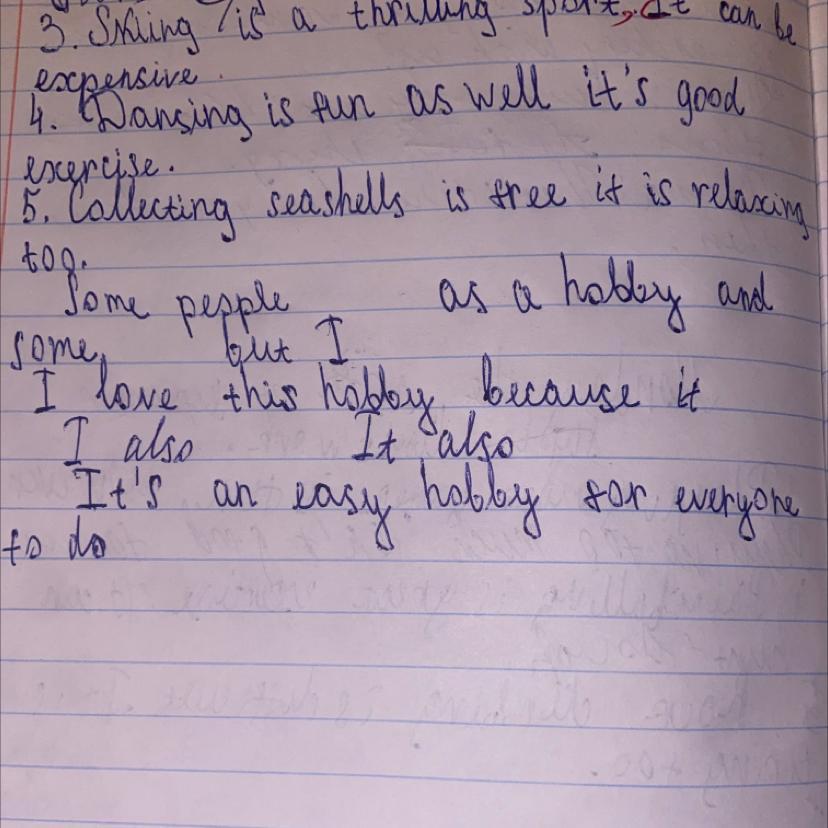 3. Skiing is a thrilling sport, It can be
expensive.
4. Dancing is fun as well it's good
exercise.
5. Collecting seashells is free it is relaxing
too.
Some people as a hobby and
some, but I
I love this hobby because it
I also It also
It's an easy hobby for everyone
to do